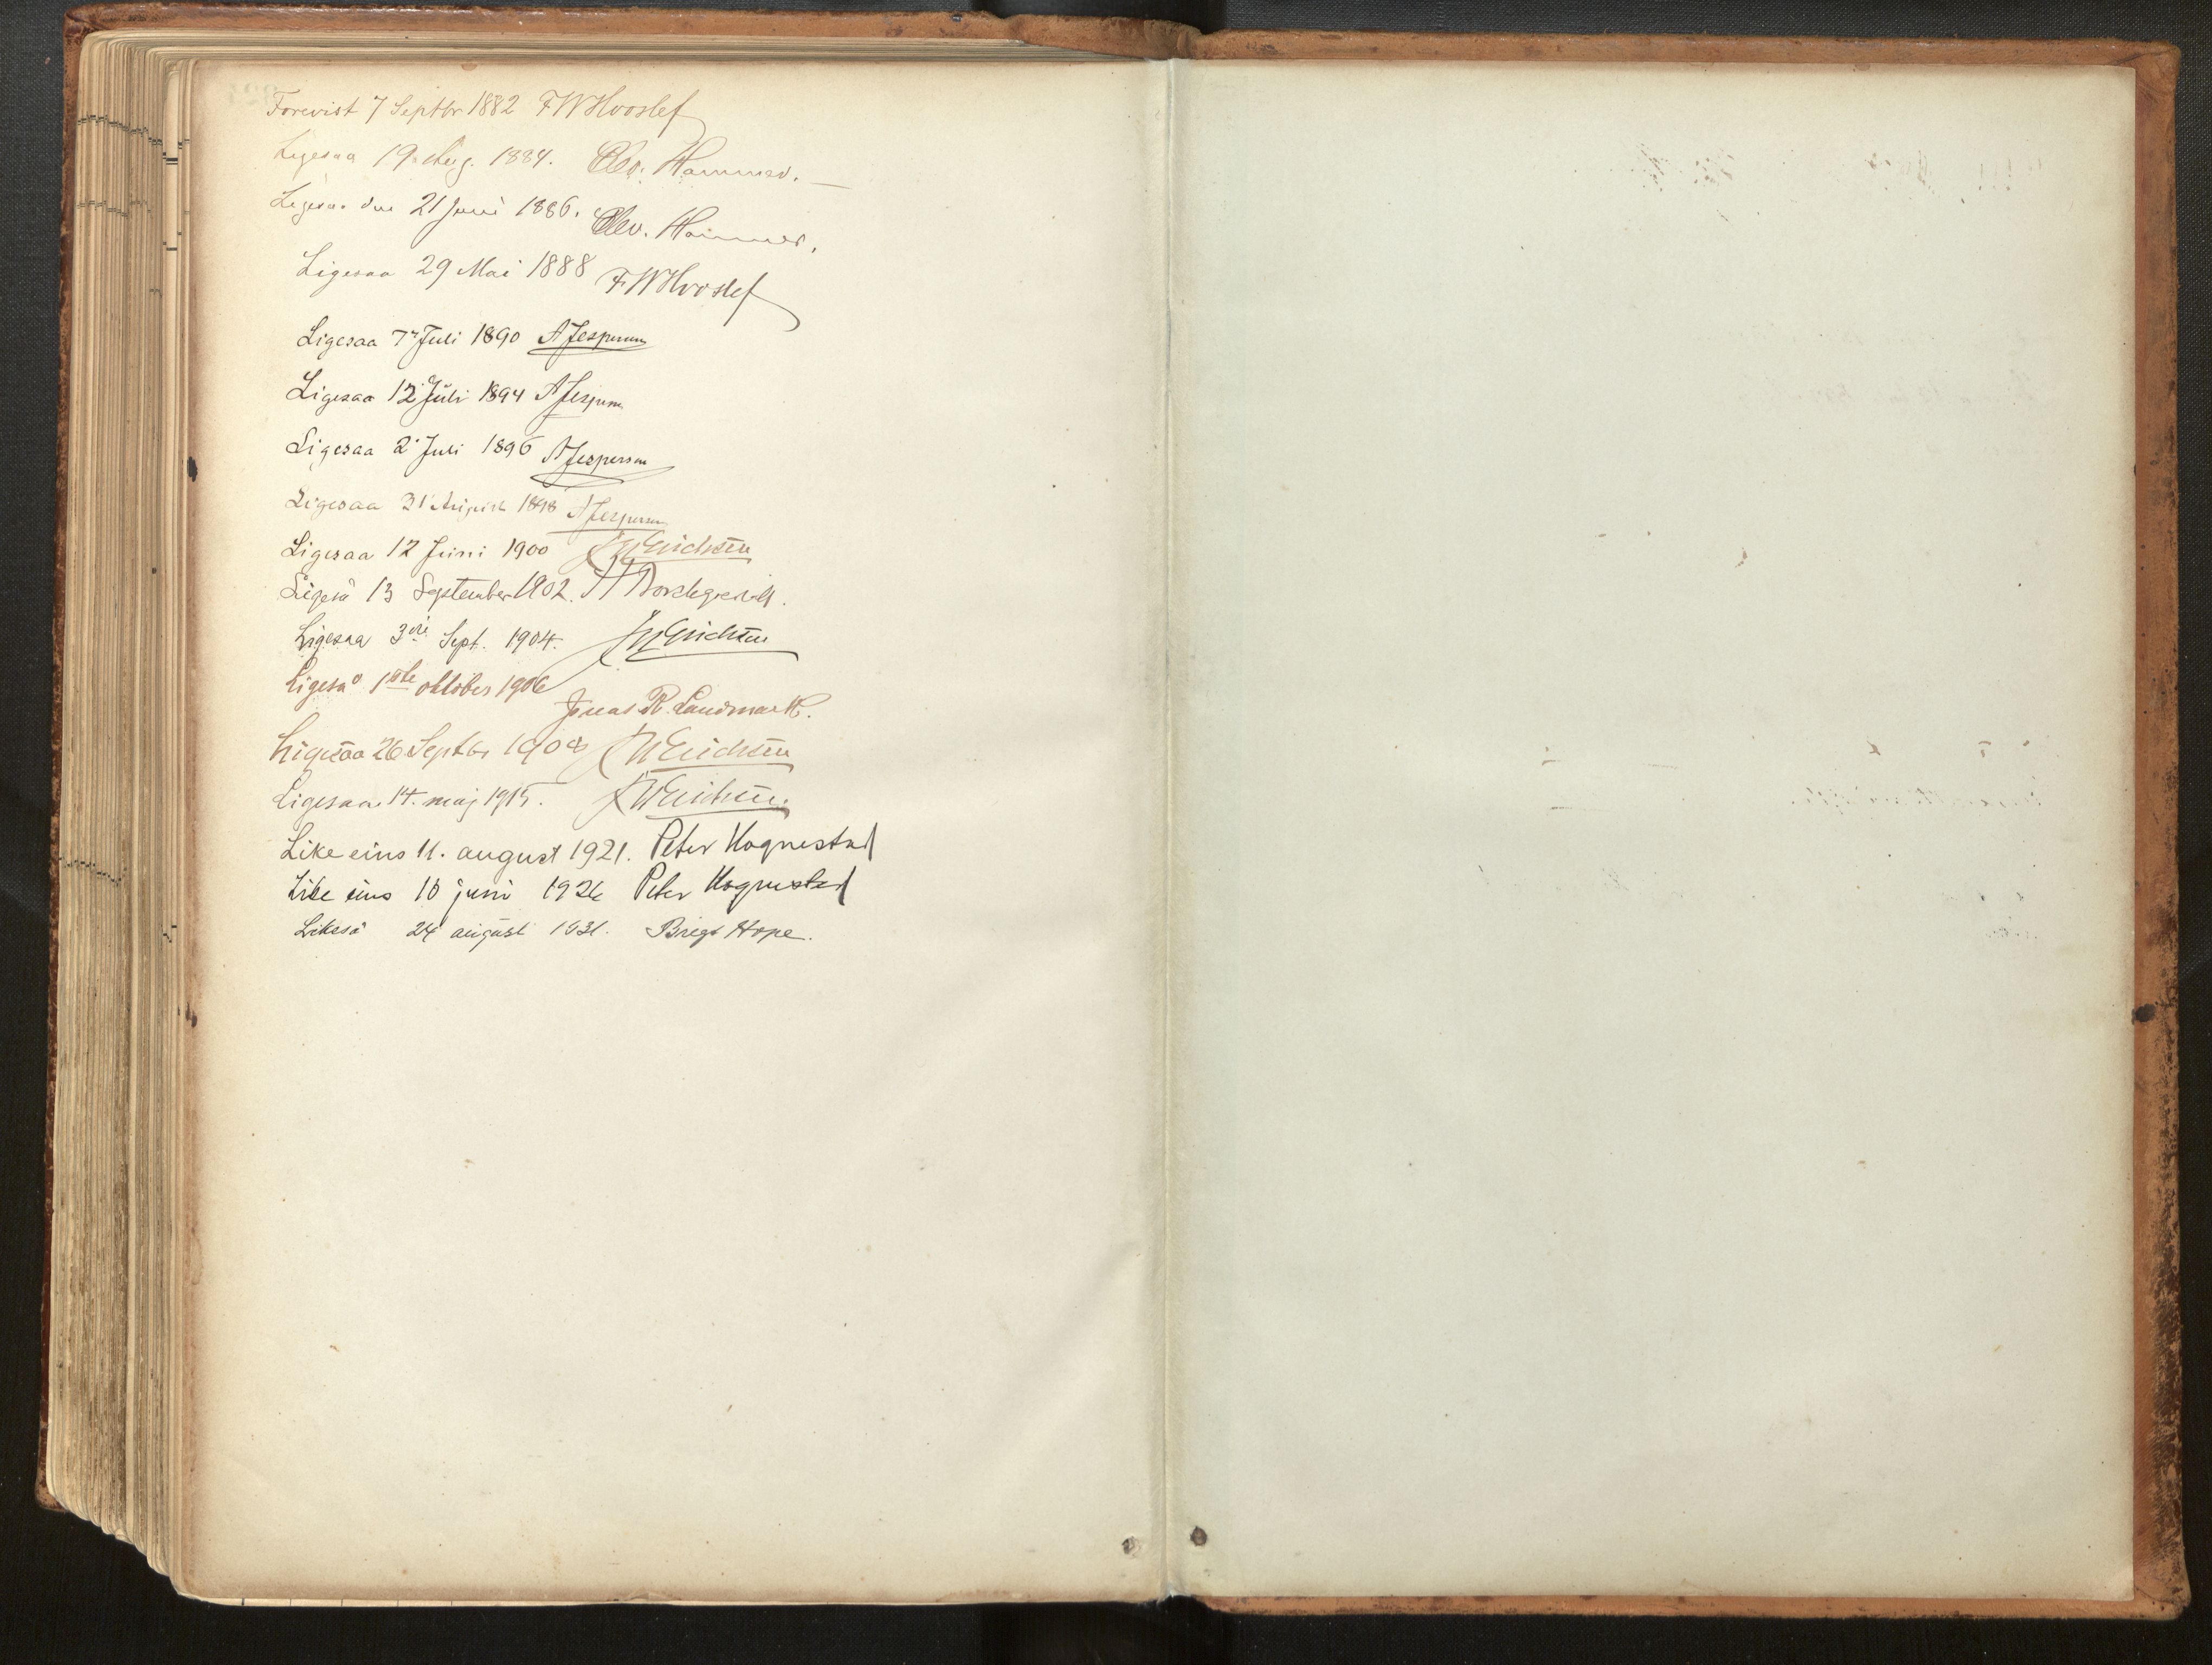 Forevist 7 Septbr 1882 FWHvoslef
Ligesaa 19. Aug. 1884. Chr. Hammer.
Ligesaa den 21 Juni 1886. Chr. Hammer.
Ligesaa 29 Mai 1888 FWHvoslef
Ligesaa 7 Juli 1890 AJespersen
Ligesaa 12 Juli 1894 AJespersen
Ligesaa 2 Juli 1896 AJespersen
Ligesaa 31 August 1898 AJespersen
Ligesaa 12 Juni 1900 Erichsen
Ligeså 13 September 1902.
Ligesaa 3die Sept. 1904. Erichsen
Ligeså 1ste oktober 1906
Jonas R. Landmark.
Ligesaa 26 Septbr 1908 Erichsen
Ligesaa 14. maj 1915. Erichsen.
Like eins 11. august 1921. Peter Hognestad
Like eins 10 juni 1926 Peter Hognestad
Likeså 24 august 1931. Bregt Hope.